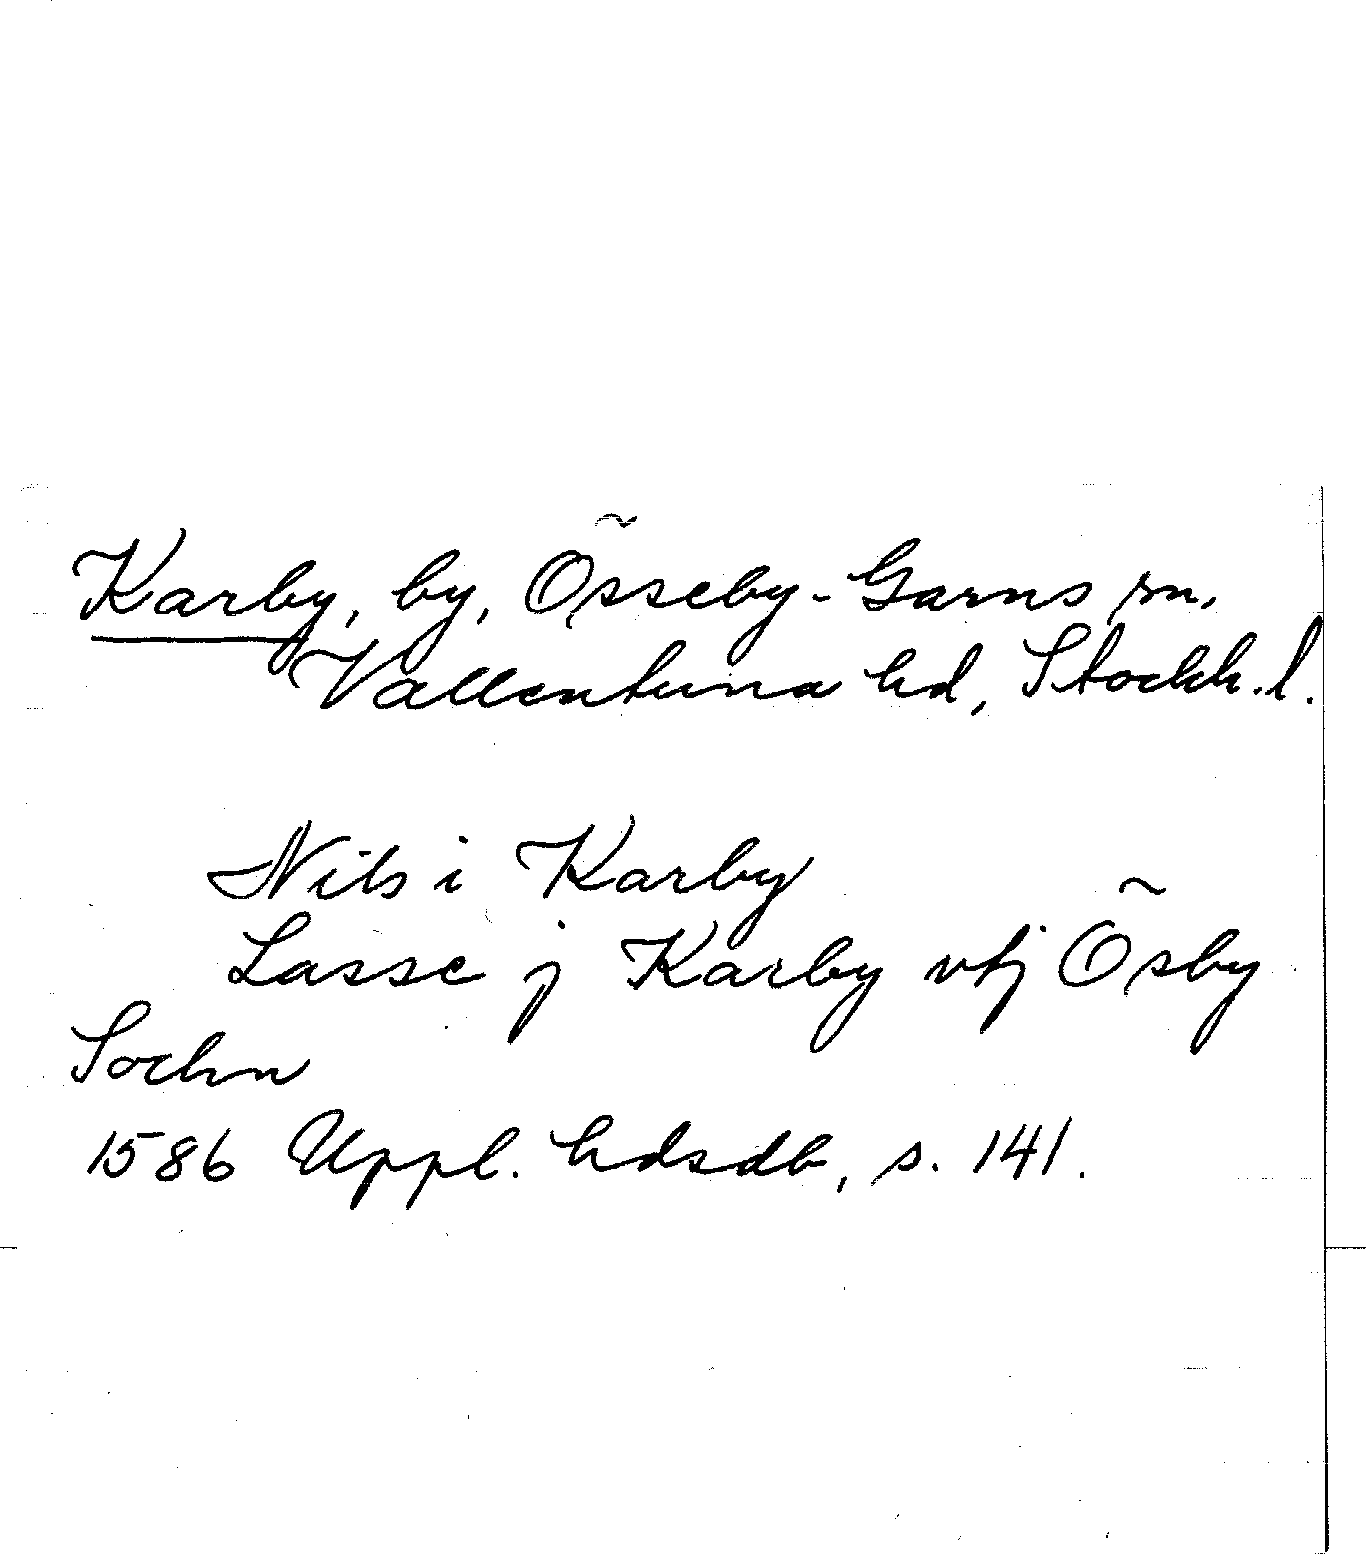 Karby, by, Össeby-Garns sn,
Vallentuna hd, Stockh. l.
Nils i Karby
Lasse j Karby vtj Ösby
Sochn
1586 Uppl. hdsdb, s. 141.